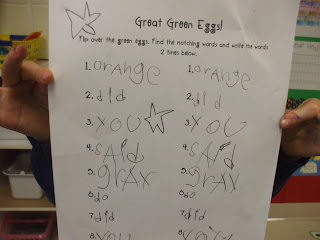 Great Green Eggs!
Flip over the green eggs. Find the matching words and write the words
2 times below.
1. orange 1. orange
2. did 2. did
3. you 3. you
4. said 4. said
5. grax 5. grax
6. do 6. do
7. did 7. did
8. you 8. you